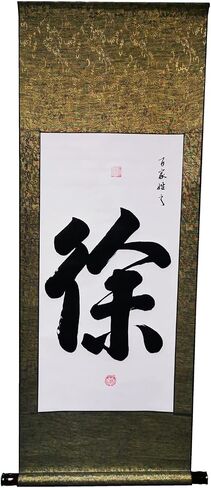 百家姓之
徐